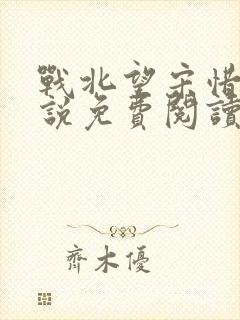 戰北望宋惜
說免費閱讀
齊木優